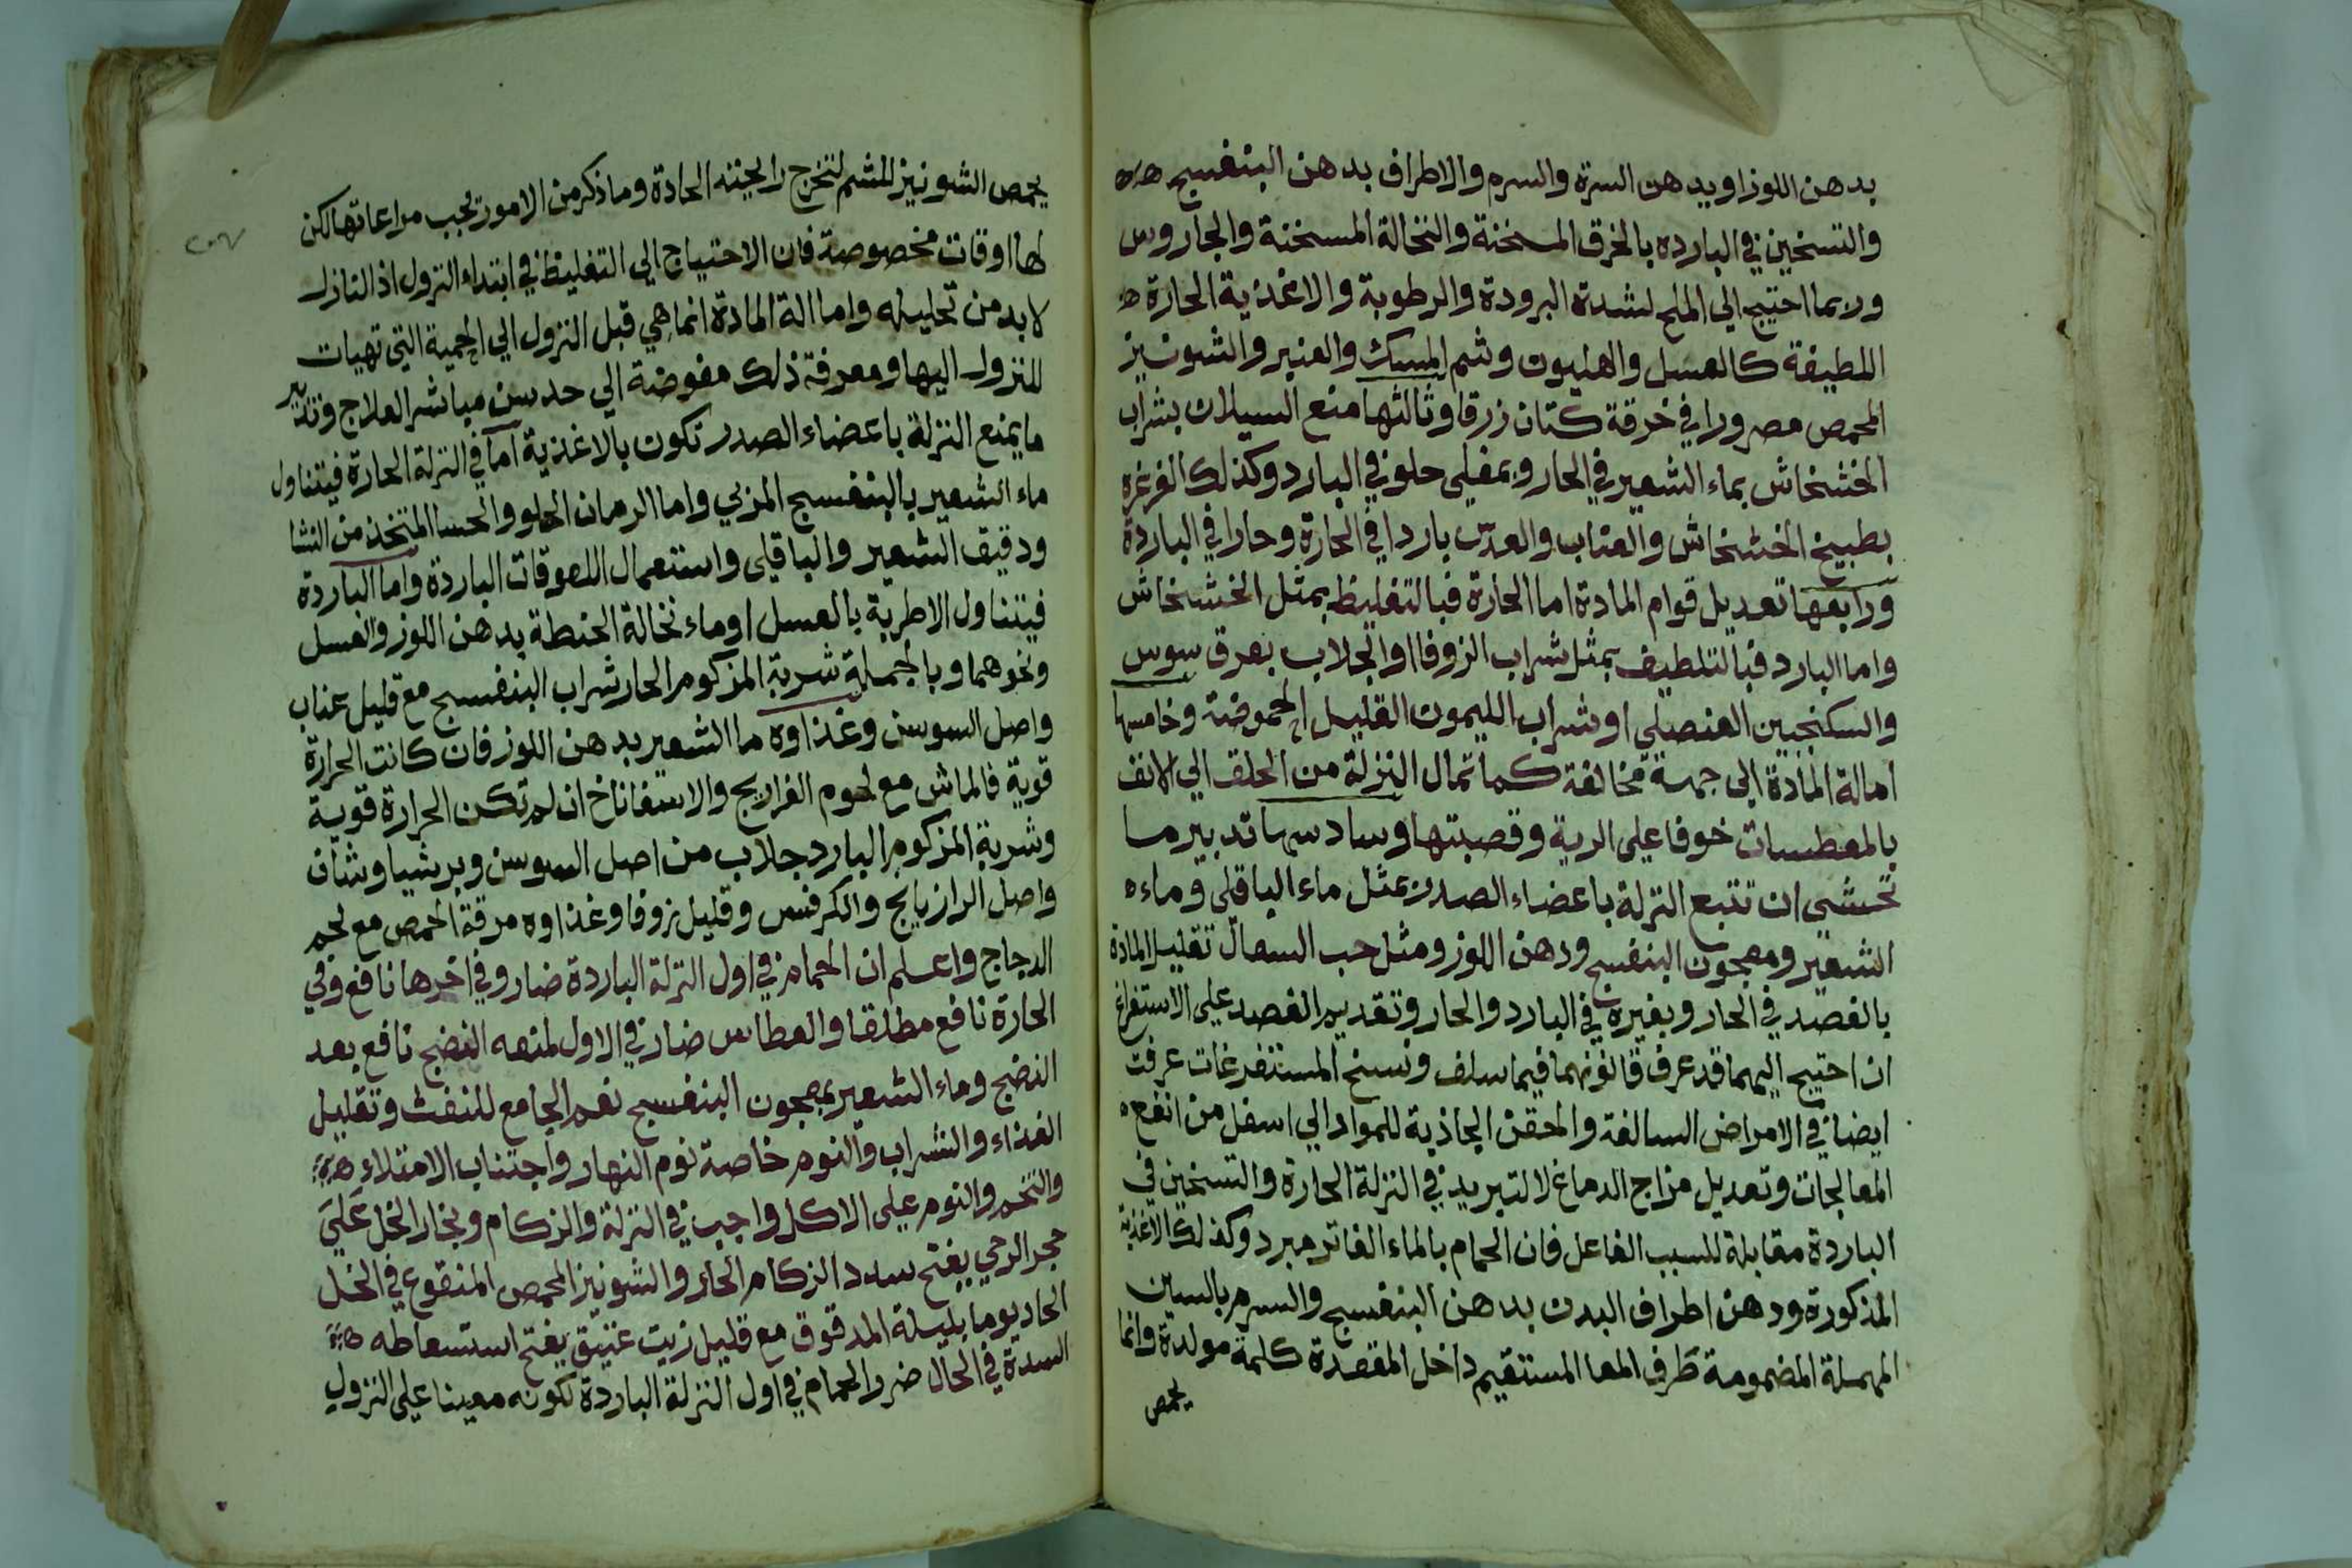 بدهن اللوز او يدهن السرة والسرم والاطراف بدهن البنفسج
والتسخين في البارده بالخرق المسخنة والنخالة المسخنة والجاروس
وربما احتيج الي الملح لشدة البرودة والرطوبة والاغذية الحارة
اللطيفة كالعسل والهليون وشم المسك والعنبر والشونيز
المحمص مصرورا في خرقة كتان زرقا وثالثها منع السيلان بشراب
الخشخاش بماء الشعير في الحار وبمغلي حلو في البارد وكذلك الغرغره
بطبيخ الخشخاش والعناب والعدس باردا في الحارة وحارا في الباردة
ورابعها تعديل قوام المادة اما الحارة فبالتغليظ بمثل الخشخاش
واما البارد فبالتلطيف بمثل شراب الزوفا او الجلاب بعرق سوس
والسكنجبين العنصلي او شراب الليمون القليل الحموضة وخامسها
امالة المادة الي جهة مخالفة كما تمال النزلة من الحلق الي الانف
بالمعطسات خوفا علي الرية وقصبتها وسادسها تدبير ما
تخشي ان تتبع النزلة باعضاء الصدر بمثل ماء الباقلي وماء
الشعير ومعجون البنفسج ودهن اللوز ومثل حب السعال تقليل المادة
بالفصد في الحار وبغيره في البارد والحار وتقديم الفصد علي الاستفراغ
ان احتيج اليهما قد عرف قانونهما فيما سلف ونسخ المستفرغات عرفت
ايضا في الامراض السالفة والحقن الجاذبة للمواد الي اسفل من انفع
المعالجات وتعديل مزاج الدماغ لا لتبريد في النزلة الحارة والتسخين في
الباردة مقابلة للسبب الفاعل فان الحمام بالماء الفاتر مبرد وكذلك الاغذية
المذكورة ودهن اطراف البدن بدهن البنفسج والسرم بالسين
المهملة المضمومة طرف المعا المستقيم داخل المقعدة كلمة مولدة وانما
يحمص
يحمص الشونيز للشم لتخرج رايحته الحادة وما ذكر من الامور تجب مراعاتها لكن
لها اوقات مخصوصة فان الاحتياج الي التغليظ في ابتداء النزول اذ النازل
لا بد من تحليله واما الة المادة انما هي قبل النزول الي الجمية التي تهيات
للنزول اليها ومعرفة ذلك مفوضة الي حدس مباشر العلاج وتدبير
ما يمنع النزلة باعضاء الصدر تكون بالاغذية اما في النزلة الحارة فيتناول
ماء الشعير بالبنفسج المربي واما الرمان الحلو والحسا المتخذ من النشا
ودقيق الشعير والباقلي واستعمال اللعوقات الباردة واما الباردة
فيتناول الاطرية بالعسل او ماء نخالة الحنطة بدهن اللوز والعسل
ونحوهما وبالجملة شربة المزكوم الحار شراب البنفسج مع قليل عناب
واصل السوسن وغذاوه ما الشعير بدهن اللوز فان كانت الحرارة
قوية فالماش مع لحوم الفراريج والاسفاناخ ان لم تكن الحرارة قوية
وشربة المزكوم البارد جلاب من اصل السوسن وبرشياوشان
واصل الرازيانج والكرفس وقليل زوفا وغذاوه مرقة الحمص مع لحم
الدجاج واعلم ان الحمام في اول النزلة الباردة ضار وفي اخرها نافع وفي
الحارة نافع مطلقا والعطاس ضار في الاول لمنعه النضج نافع بعد
النضج وماء الشعير بمعجون البنفسج نعم الجامع للنفث وتقليل
الغذاء والشراب والنوم خاصة نوم النهار واجتناب الامتلاء
والتخم والنوم علي الاكل واجب في النزلة والزكام وبخار الخل علي
حجر الرحي يفتح سدد الزكام الحار والشونيز المحمص المنقوع في الخل
الحاد يوما بليلة المدقوق مع قليل زيت عتيق يفتح استسعاطه
السدة في الحال ضر والحمام في اول النزلة الباردة لكونه معينا علي النزول